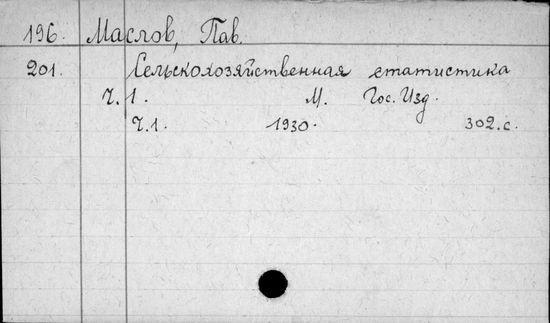 196. Маслов, Пав.
201. Сельскохозяйственная статистика
Ч. 1. М. Гос. Изд.
Ч. 1. 1930. 302. с.